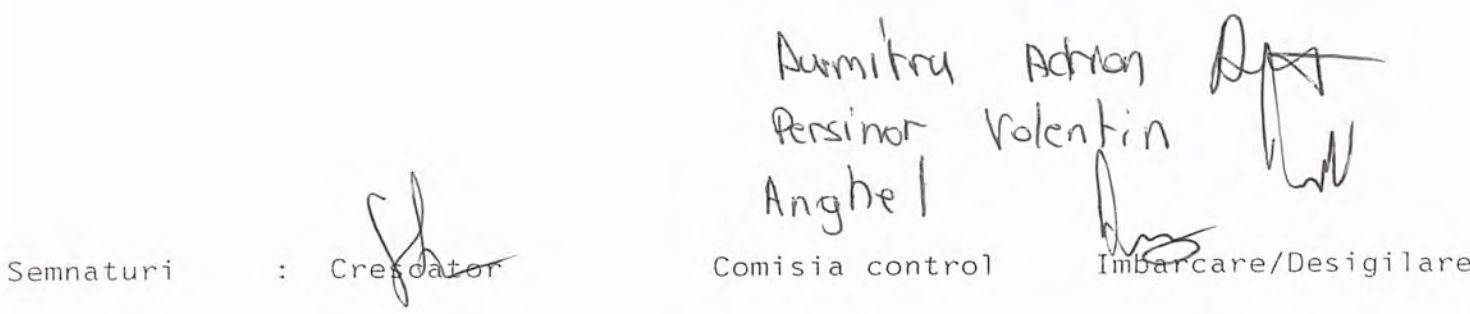 Dumitru Adrian
Persinar Valentin
Anghel
Semnaturi : Crescator Comisia control Imbarcare/Desigilare